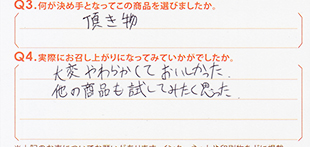 Q3.何が決め手となってこの商品を選びましたか。
頂き物
Q4.実際にお召し上がりになってみていかがでしたか。
大変やわらかくておいしかった。
他の商品も試してみたく思った。